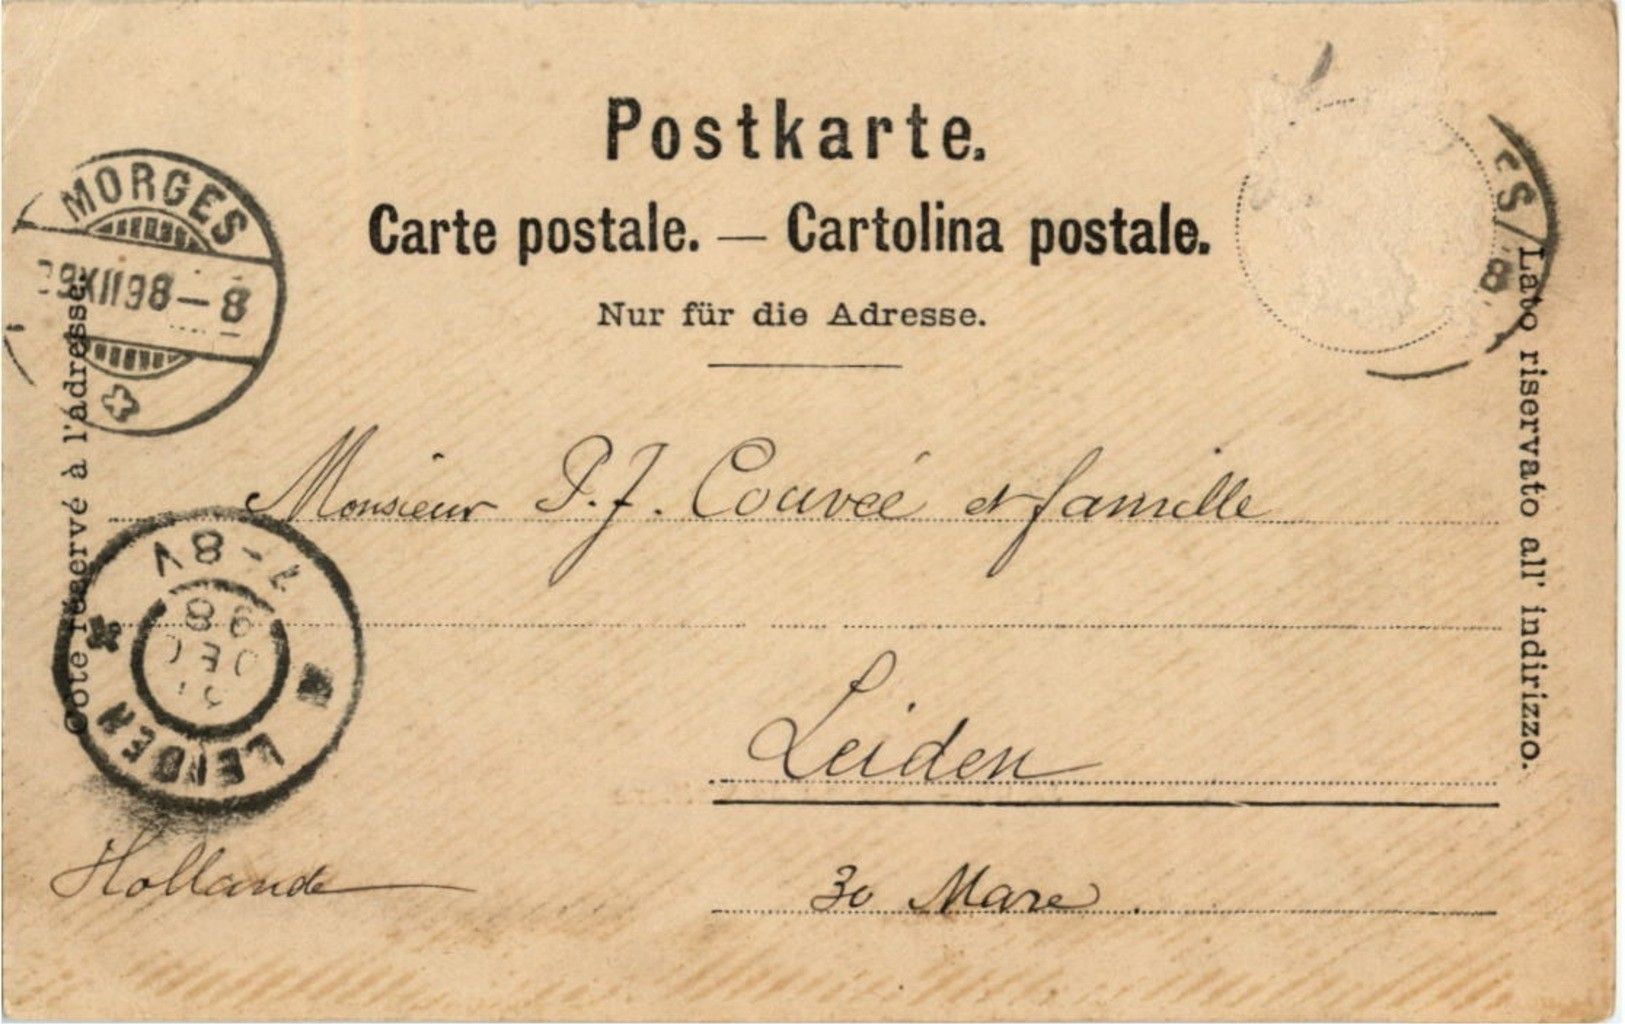 Postkarte.
Carte postale. — Cartolina postale.
Nur für die Adresse.
MORGES
9XII98–8
Côté réservé à l'adresse.
Lato riservato all' indirizzo.
Monsieur P. J. Couvée et famille
Leiden
30 Mare.
Hollande
LEIDEN
7-8V
98